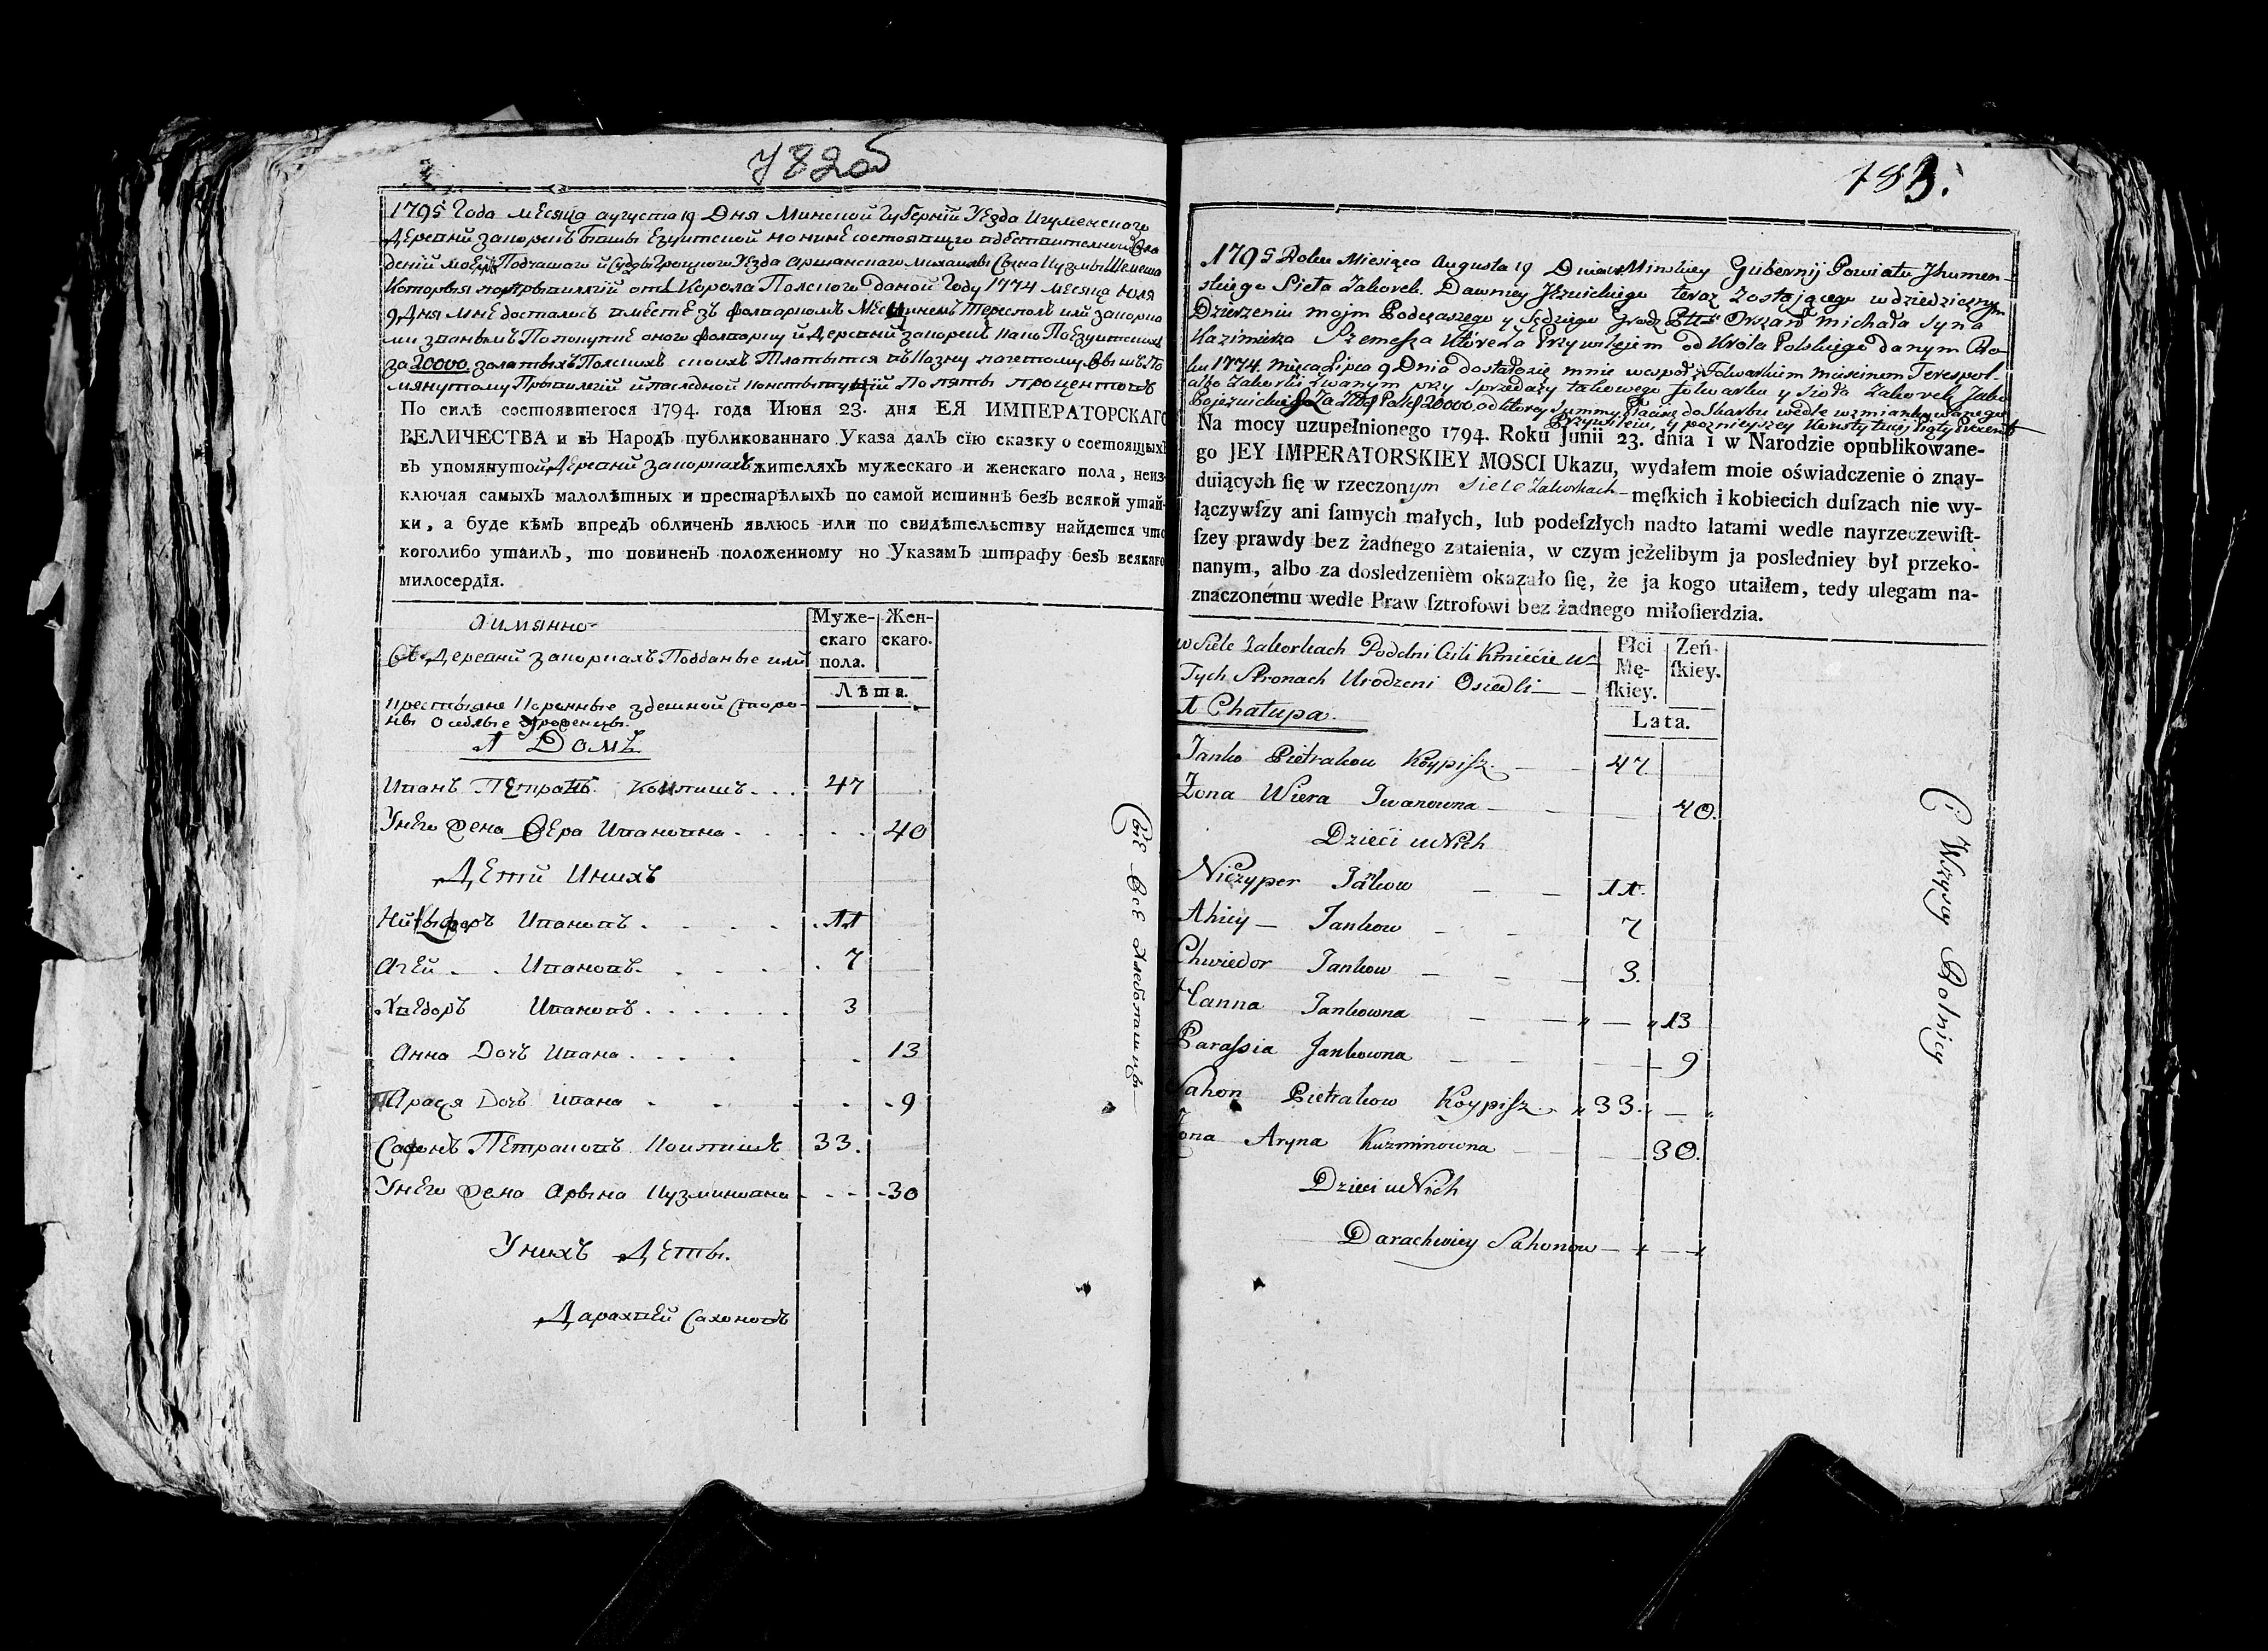 782об
1795 Года месяца августа 19 Дня Минской Губернїи Уезда Игуменского
Деревни Закорекъ Бывшы Езуитской но нине состоящого
дении моемъ Подчашаго и Судьи Гроцкого Уезда Аршанскаго Михаила Сына
Которыя по Прывилегїи отъ Короля Полского даной Году 1774 месяца Юля
9 Дня мне досталось вместе зъ фольваркомъ Тересполь или Закорка
ми званымъ оного фольварку и Деревни Закорекъ
за 20000 залатыхъ Полскихъ
мянутому Прывилегїи и последной Констытуцїи По пяты процентовъ
По силѣ состоявшегося 1794. года Июня 23. дня ЕЯ ИМПЕРАТОРСКАГО
ВЕЛИЧЕСТВА и въ НародЪ публикованнаго Указа далЪ сїю сказку о состоящыхЪ
въ упомянутой Деревни Закоркахъ жителяхЪ мужескаго и женскаго пола, неиз-
ключая самыхЪ малолѣтныхЪ и престарѣлыхЪ по самой истиннѣ безЪ всякой утай-
ки, а буде кѣмЪ впредЪ обличенЪ явлюсь или по свидѣтельству найдется что
коголибо утаилЪ, то повиненЪ положенному по УказамЪ штрафу безЪ всякаго
милосердїя.
Аимянно
Муже-
скаго
пола.
Жен-
скаго.
Лѣта.
Въ Деревни ЗакоркахъПодданые или
крестьяне Коренные здешной Сторо-
ны
1 Домъ
Иванъ Петраковъ Койпишъ 47
Унего Жена Вера Ивановна 40
Дети Унихъ
Ничыфаръ Ивановъ 11
Агей Ивановъ 7
Хведоръ Ивановъ 3
Анна Дочъ Ивана 13
Парася Дочъ Ивана 9
Сафонъ Петраковъ Койпишъ 33.
Унего Жена Арына Кузминовна 30
Унихъ Дети.
Дарахвей Сахоновъ
Сіе Все Хлебопашцы
183.
1795 Roku Miesiąca Augusta 19 Dnia w Minskiey Gubernij Powiatu Jhumen-
skiego Sieła Zakorek. Dawniey Jezuickiego teraz Zostającego w dziedzicznym
Dzierzeniu mojm Podczaszego y Sędziego Grodz Pttu Orszań Michała syna
Kazimierza Szemesza Które za Przywilejem od Króla Polskiego danym Ro-
ku 1774. Mięca Lipca 9 Dnia dostało się mnie wespoł z Folwarkiem Terespol-
albo Zakorki Zwanym przy Sprzedaży takowego folwarku y Sioła Zakorek Jako
Pojezuickiego Za Złł Pol 20000, od ktorey Summy Płacimę do Skarbu wedle wzmiankowanego
Przywileiu, y poznieyszey Konstytucij Piąty Procent
Na mocy uzupełnionego 1794. Roku Junii 23. dnia i w Narodzie opublikowane-
go JEY IMPERATORSKIEY MOSCI Ukazu, wydałem moie oświadczenie o znay-
duiących ſię w rzeczonym Siele Zakorkach męſkich i kobiecich duſzach nie wy-
łączywſzy ani ſamych małych, lub podeſzłych nadto latami wedle nayrzeczewiſt-
ſzey prawdy bez żadnego zataienia, w czym jeżelibym ja posledniey był przeko-
nanym, albo za dosledzeniem okazało ſię, że ja kogo utaiłem, tedy ulegam na-
znaczonému wedle Praw ſztrofowi bez żadnego miłoſierdzia.
w Siele Zakorkach Poddni Czili Kmiecie w
Tych Stronach Urodzeni Osiedli
Płci
Mę-
ſkiey.
Żeń-
ſkiey.
Lata.
1 Chałupa.
Janko Pietrakow Koypisz 47
Żona Wiera Jwanowna 40.
Dzieci u Nich
Niczyper Jankow 11.
Ahiey Jankow 7
Chwiedor Jankow 3.
Hanna Jankowna 13
Parassia Jankowna 9
Sahon Pietrakow Koypisz 33.
Żona Aryna Kuzminowna 30.
Dzieci u Nich
Darachwiey Sahonow
Ci Wszyscy Rolnicy